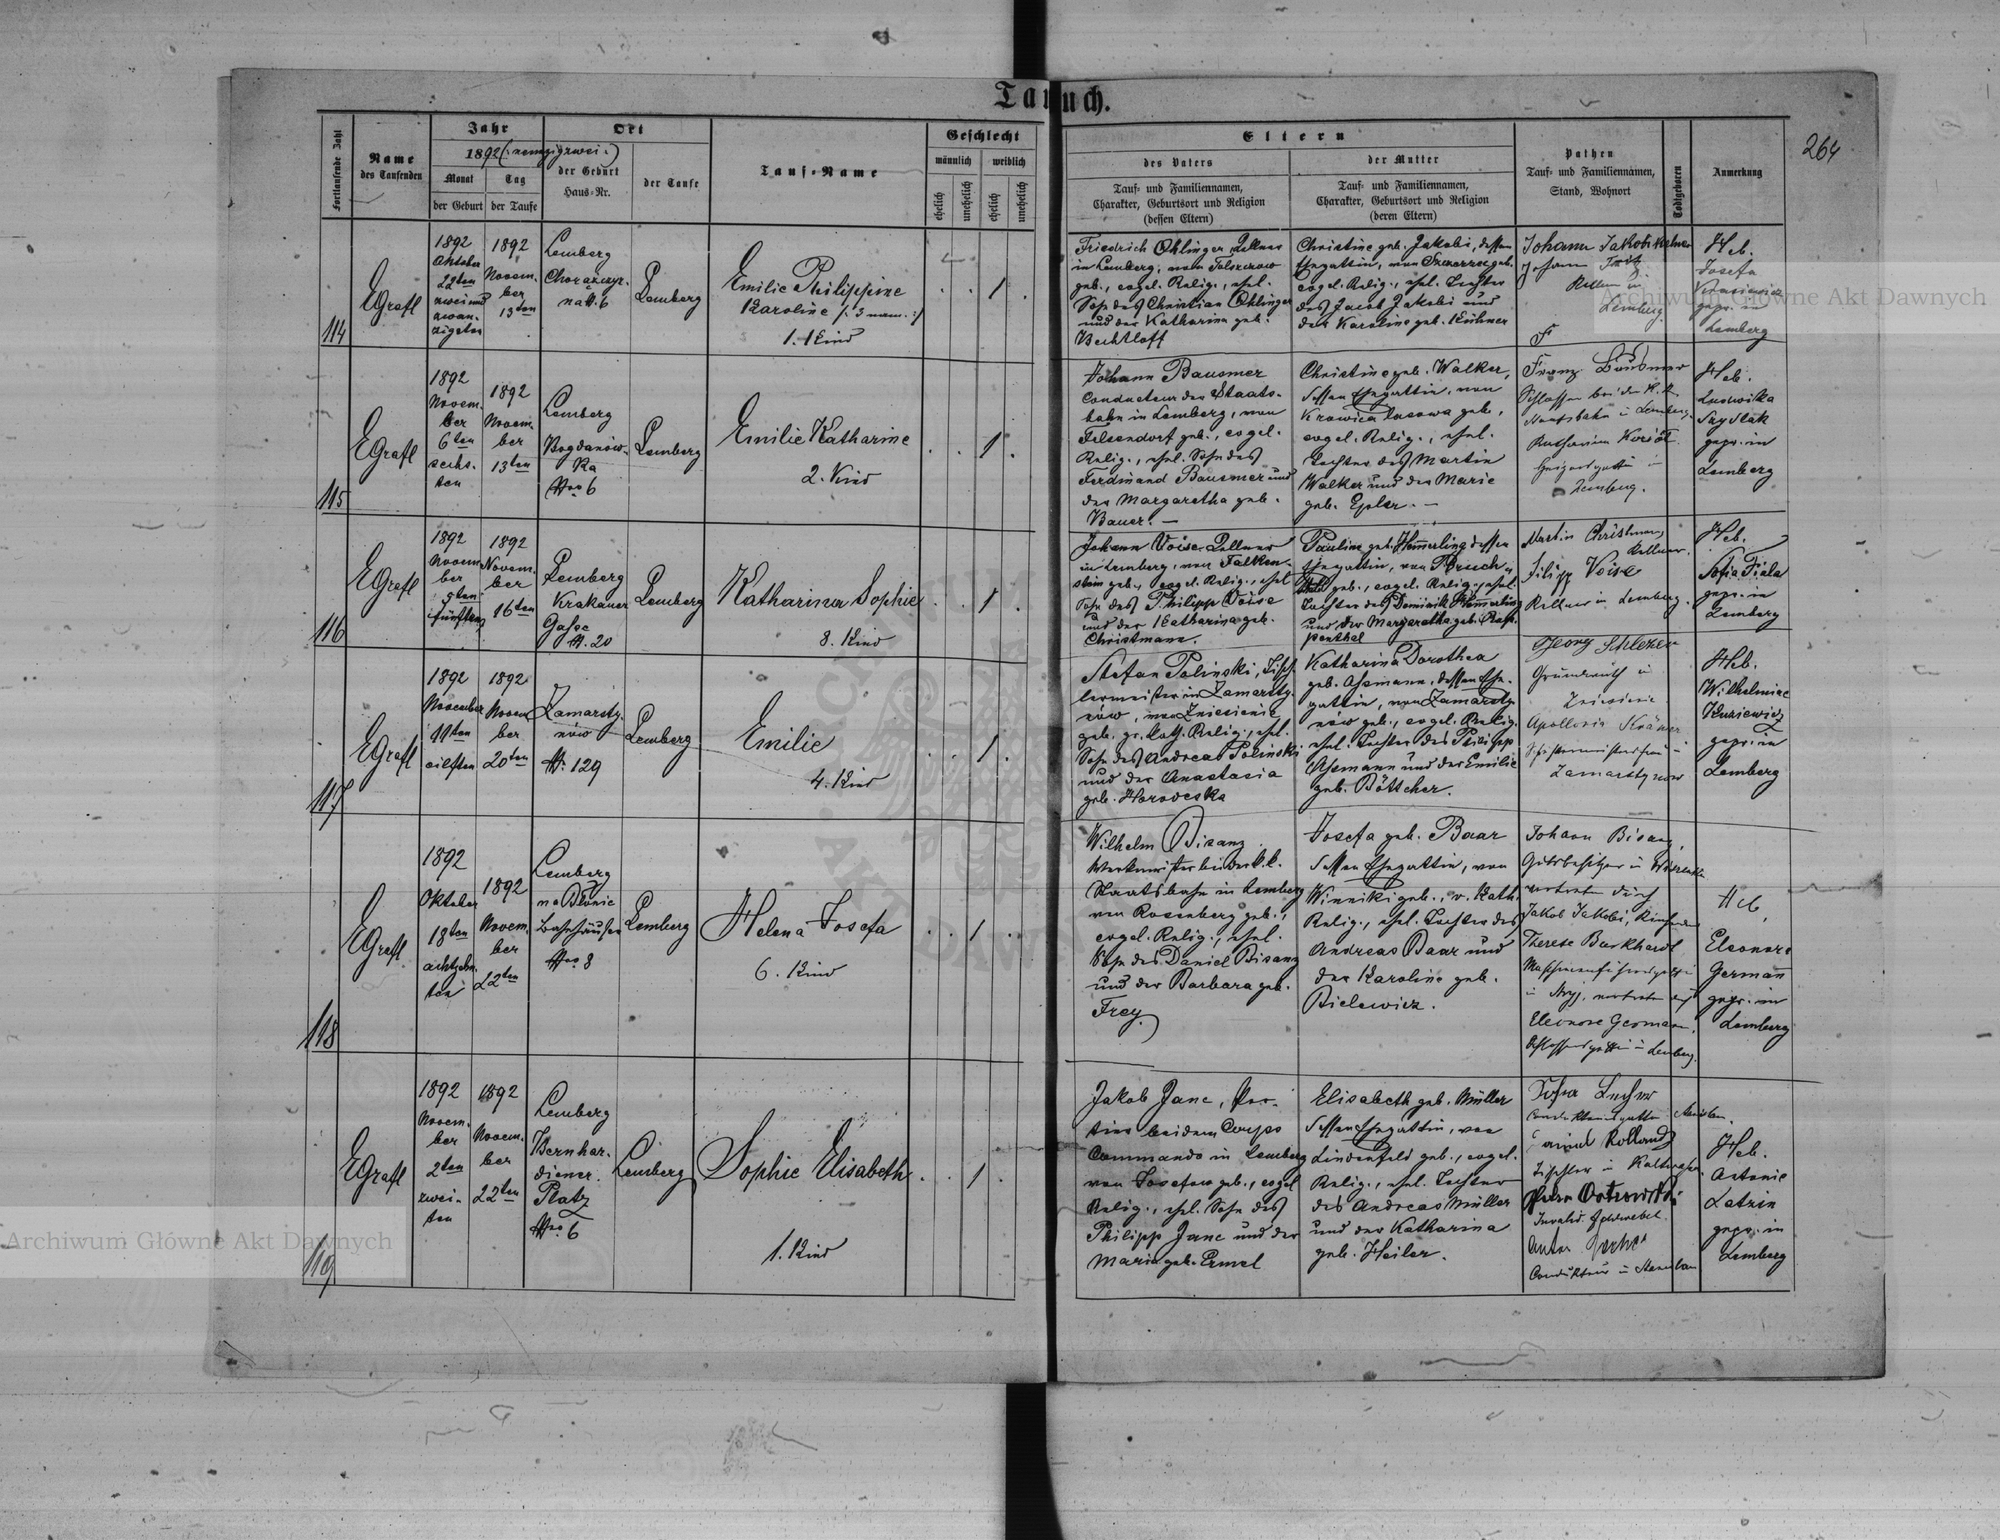 Taufbuch.
264
Fortlaufende Zahl
Name
des Taufenden
Jahr
1892 (: neunzigzwei :)
Monat
Tag
der Geburt
der Taufe
Ort
der Geburt
Haus-Nr.
der Taufe
Tauf-Name
Geschlecht
männlich
weiblich
ehelich
unehelich
ehelich
unehelich
Eltern
des Vaters
Tauf- und Familiennamen,
Charakter, Geburtsort und Religion
(dessen Eltern)
der Mutter
Tauf- und Familiennamen,
Charakter, Geburtsort und Religion
(deren Eltern)
Pathen
Tauf- und Familiennamen,
Stand, Wohnort
Todtgeboren
Anmerkung
114
EGrafl
1892
Oktober
22ten
zwei und
zwan-
zigsten
1892
Novem-
ber
13ten
Lemberg
Chorąższyz-
na N. 6
Lemberg
Emilie Philippine
Karoline /: 3 nam. :/
1. Kind
1
Friedrich Ohlinger Kellner
in Lemberg, von
geb., evgel. Relig., ehel.
Sohn des Christian Ohlinger
und der Katharina geb.
Bechtloff
Christine geb. Jakobi, dessen
Ehegattin, von geb.
evgel. Relig., ehel. Tochter
des Jacob Jakobi und
der Karoline geb. Kühner
Johann Jakobi Kellner
Johann
Kellner in
Lemberg.
Heb.
Josefa
gepr. in
Lemberg
115
EGrafl
1892
Novem-
ber
6ten
sechs-
ten
1892
Novem-
ber
13ten
Lemberg
Bogdanów-
ka
Nro 6
Lemberg
Emilie Katharine
2. Kind
1
Johann Bausmer
Conducteur der Staats-
bahn in Lemberg, von
Felsendorf geb., evgel.
Relig., ehel. Sohn des
Ferdinand Bausmer und
der Margaretha geb.
Bauer. —
Christine geb. Walker,
dessen Ehegattin, von
Krowica lasowa geb.,
evgel. Relig., ehel.
Tochter des Martin
Walker und der Marie
geb. Epler. —
Franz Bausmer
Schlosser bei der K. k.
Staatsbahn in Lemberg.
Katharina
in
Lemberg.
Heb.
Ludwika
Szydlak
gepr. in
Lemberg
116
EGrafl
1892
Novem-
ber
5ten
fünften
1892
Novem-
ber
16ten
Lemberg
Krakauer
Gasse
N. 20
Lemberg
Katharina Sophie
8. Kind
1
Johann Voise Kellner
in Lemberg, von Falken-
stein geb., evgel. Relig., ehel.
Sohn des Philipp Voise
und der Katharina geb.
Christmann.
Pauline geb. Hemmerling dessen
Ehegattin, von
geb., evgel. Relig., ehel.
Tochter des Dominik Hemerling
und der Margaretha geb.
penthal
Martin Christmann,
Kellner.
Filipp Voise
Kellner in Lemberg.
Heb.
Sofia Fiala
gepr. in
Lemberg
117
EGrafl
1892
November
11ten
eilften
1892
Novem-
ber
20ten
Zamarsty-
nów
N. 129
Lemberg
Emilie
4. Kind
1
Stefan Polinski, Tisch-
lermeister in Zamarsty-
nów, von Zniesienie
geb. gr. kath. Relig., ehel.
Sohn des Andreas Polinski
und der Anastasia
geb. Horodeska
Katharina Dorothea
geb. Assmann, dessen Ehe-
gattin, von Zamarsty-
nów geb., evgel. Relig.
ehel. Tochter des Philipp
Assmann und der Emilie
geb. Böttcher.
Georg
Grundwirth in
Zniesienie
Apollonia Krämer
in
Zamarstynow
Heb.
Wilhelmine
gepr. in
Lemberg
118
EGrafl
1892
Oktober
18ten
achtzehn-
ten
1892
Novem-
ber
22ten
Lemberg
na Błonie
Bahnhäuser
Nro 8
Lemberg
Helena Josefa
6. Kind
1
Wilhelm Bisanz
Werkmeister bei der k.k.
Staatsbahn in Lemberg
von Rosenberg geb.,
evgel. Relig., ehel.
Sohn des Daniel Bisanz
und der Barbara geb.
Frey.
Josefa geb. Baar
dessen Ehegattin, von
Winniki geb., r. kath.
Relig., ehel. Tochter des
Andreas Baar und
der Karoline geb.
Bielewicz.
Johann Bisanz,
Gutsbesitzer in
vertreten durch
Jakob Jakobi,
Therese Burkhardt
in Stryj, vertreten durch
Eleonore Germann,
Schlossersgattin in Lemberg.
Heb.
Eleonore
Germann
gepr. in
Lemberg
119
EGrafl
1892
Novem-
ber
2ten
zwei-
ten
1892
Novem-
ber
22ten
Lemberg
Bernhar-
diener
Platz
Nro 6
Lemberg
Sophie Elisabeth
1. Kind
1
Jakob Janc, Por-
tier bei dem Corps
Commando in Lemberg
von Josefow geb., evgel.
Relig., ehel. Sohn des
Philipp Janc und der
Maria geb. Ermel
Elisabeth geb. Müller
dessen Ehegattin, von
Lindenfeld geb., evgel.
Relig., ehel. Tochter
des Andreas Müller
und der Katharina
geb. Heiler.
Sofia
Tischler in
Invalid. Feldwebel.
Anton
Condukteur in
Heb.
Antonie
gepr. in
Lemberg
Archiwum Główne Akt Dawnych
Archiwum Główne Akt Dawnych